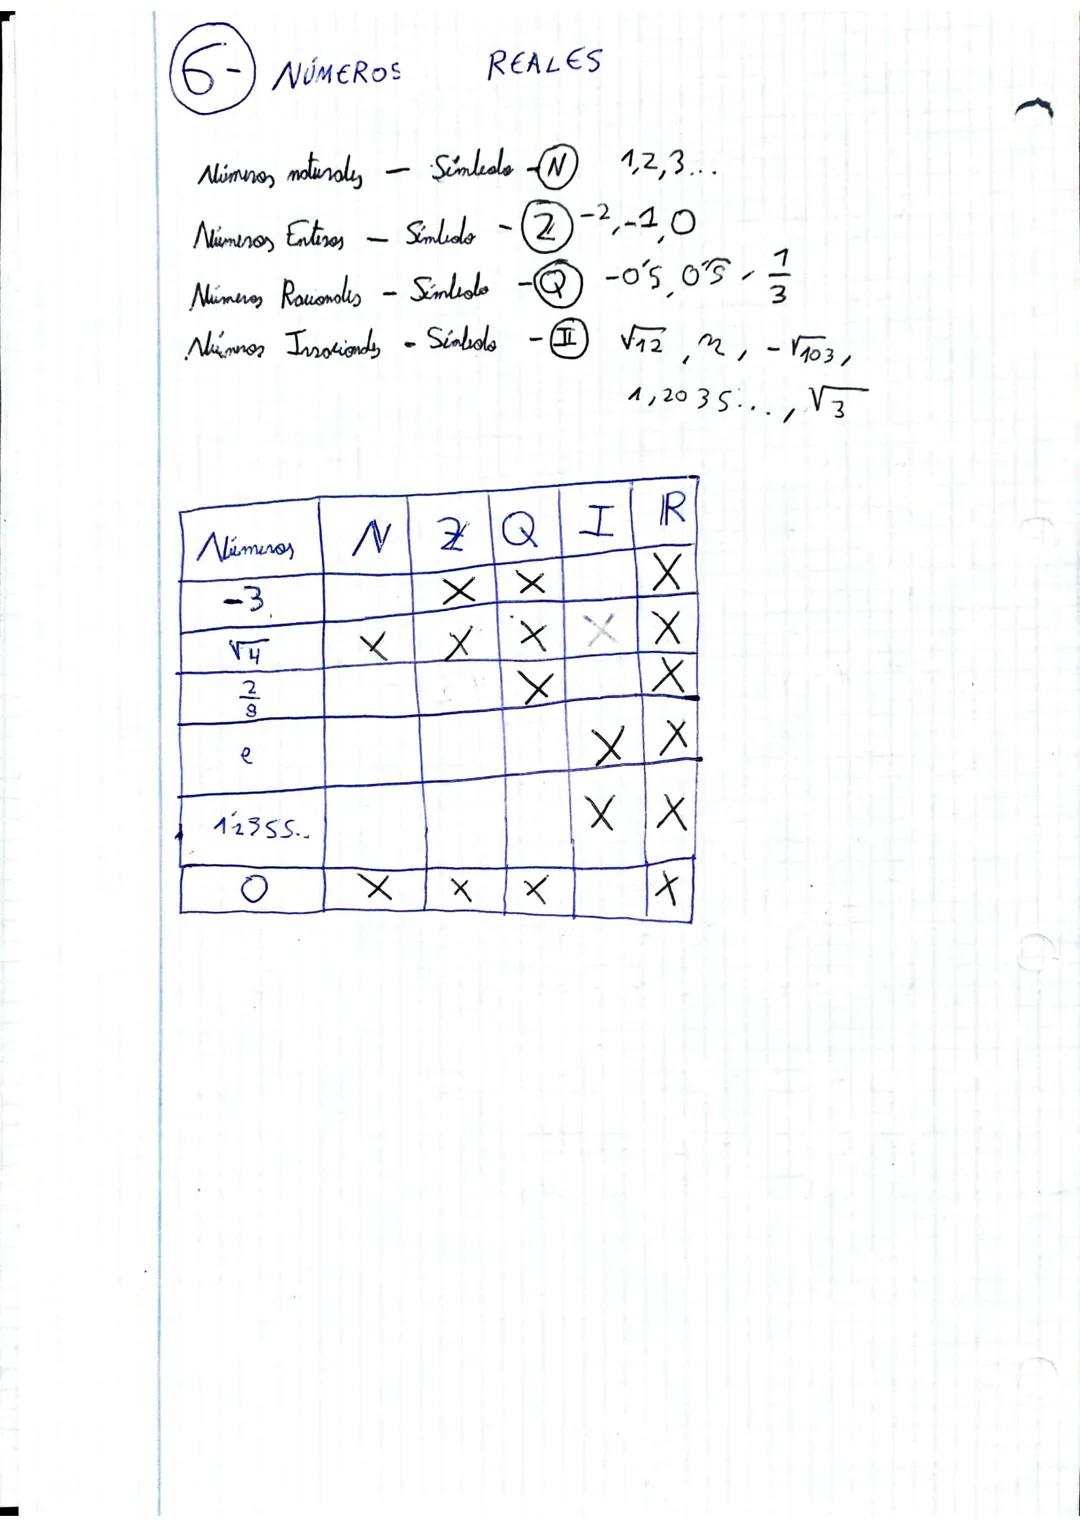 6- NÚMEROS REALES
Números naturales — Símbolo - N 1,2,3...
Números Enteros — Símbolo - Z -2,-1,0
Números Racionales - Símbolo - Q -0'5, 0'5, 1/3
Números Irracionales - Símbolo - I √12, π, -√103,
1,2035..., √3
Números N Z Q I R
-3 X X X
√4 X X X X X
2/8 X X
e X X
1'2355.. X X
0 X X X X